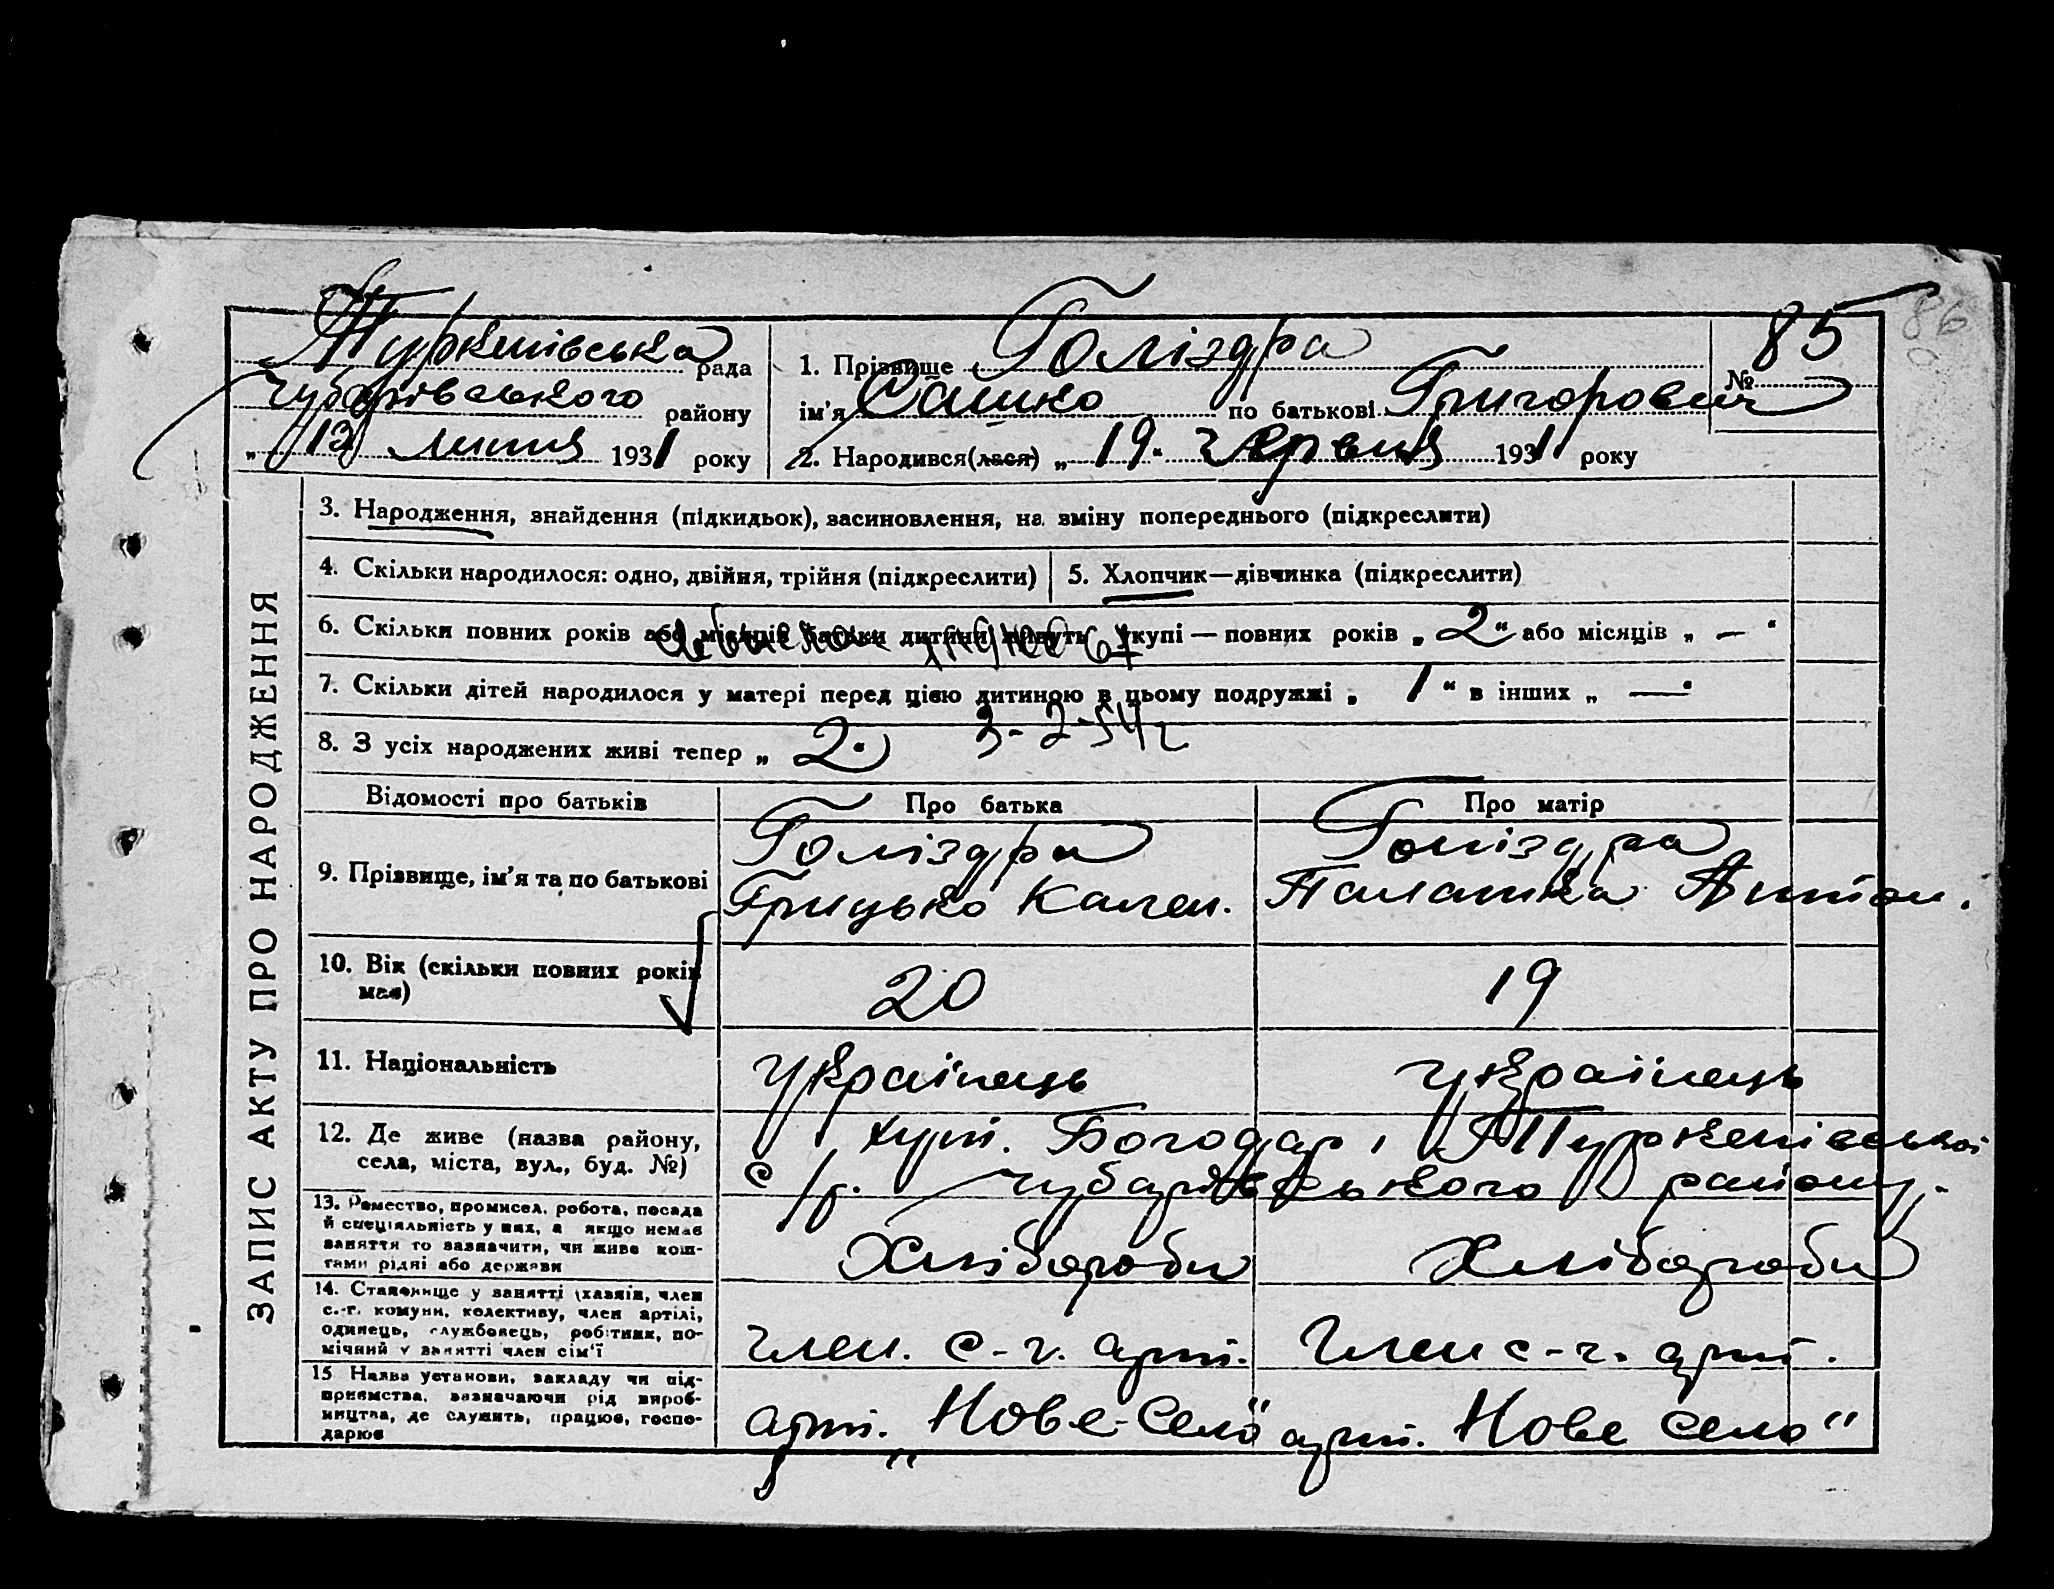 86
Туркенівська рада
Чубарівського району
„ 13 " липня 1931 року
1. Прізвище Голіздра
ім'я Сашко по батькові Григорович
№ 85
2. Народився(лася) „ 19 " червня 1931 року
ЗАПИС АКТУ ПРО НАРОДЖЕННЯ
3. Народження, знайдення (підкидьок), засиновлення, на зміну попереднього (підкреслити)
4. Скільки народилося: одно, двійня, трійня (підкреслити)
5. Хлопчик—дівчинка (підкреслити)
6. Скільки повних років або місяців батьки дитини живуть укупі — повних років „ 2 " або місяців „ — "
7. Скільки дітей народилося у матері перед цією дитиною в цьому подружжі „ 1 " в інших „ — "
8. З усіх народжених живі тепер „ 2 "
3-2-54 г
Відомості про батьків
Про батька
Про матір
9. Прізвище, ім'я та по батькові
Голіздра
Грицько Кален.
Голіздра
Палашка Антон.
10. Вік (скільки повних років
має)
20
19
11. Національність
українець
українець
12. Де живе (назва району,
села, міста, вул., буд. №)
хут. Богодар, Туркенівської
с/р. Чубарівського району.
13. Ремество, промисел, робота, посада
й спеціяльність у них, а якщо немає
заняття то зазначити, чи живе кош-
тами рідні або держави
Хлібороби
Хлібороби
14. Становище у занятті (хазяїн, член
с.-г. комуни, колективу, член артілі,
одинець, службовець, робітник, по-
мічний у занятті член сім'ї
член. с-г. арт.
Член с-г. арт.
15 Назва установи, закладу чи під-
приємства, зазначаючи рід вироб-
ництва, де служить, працює, госпо-
дарює
арт. „Нове-Село"
арт. Нове село"